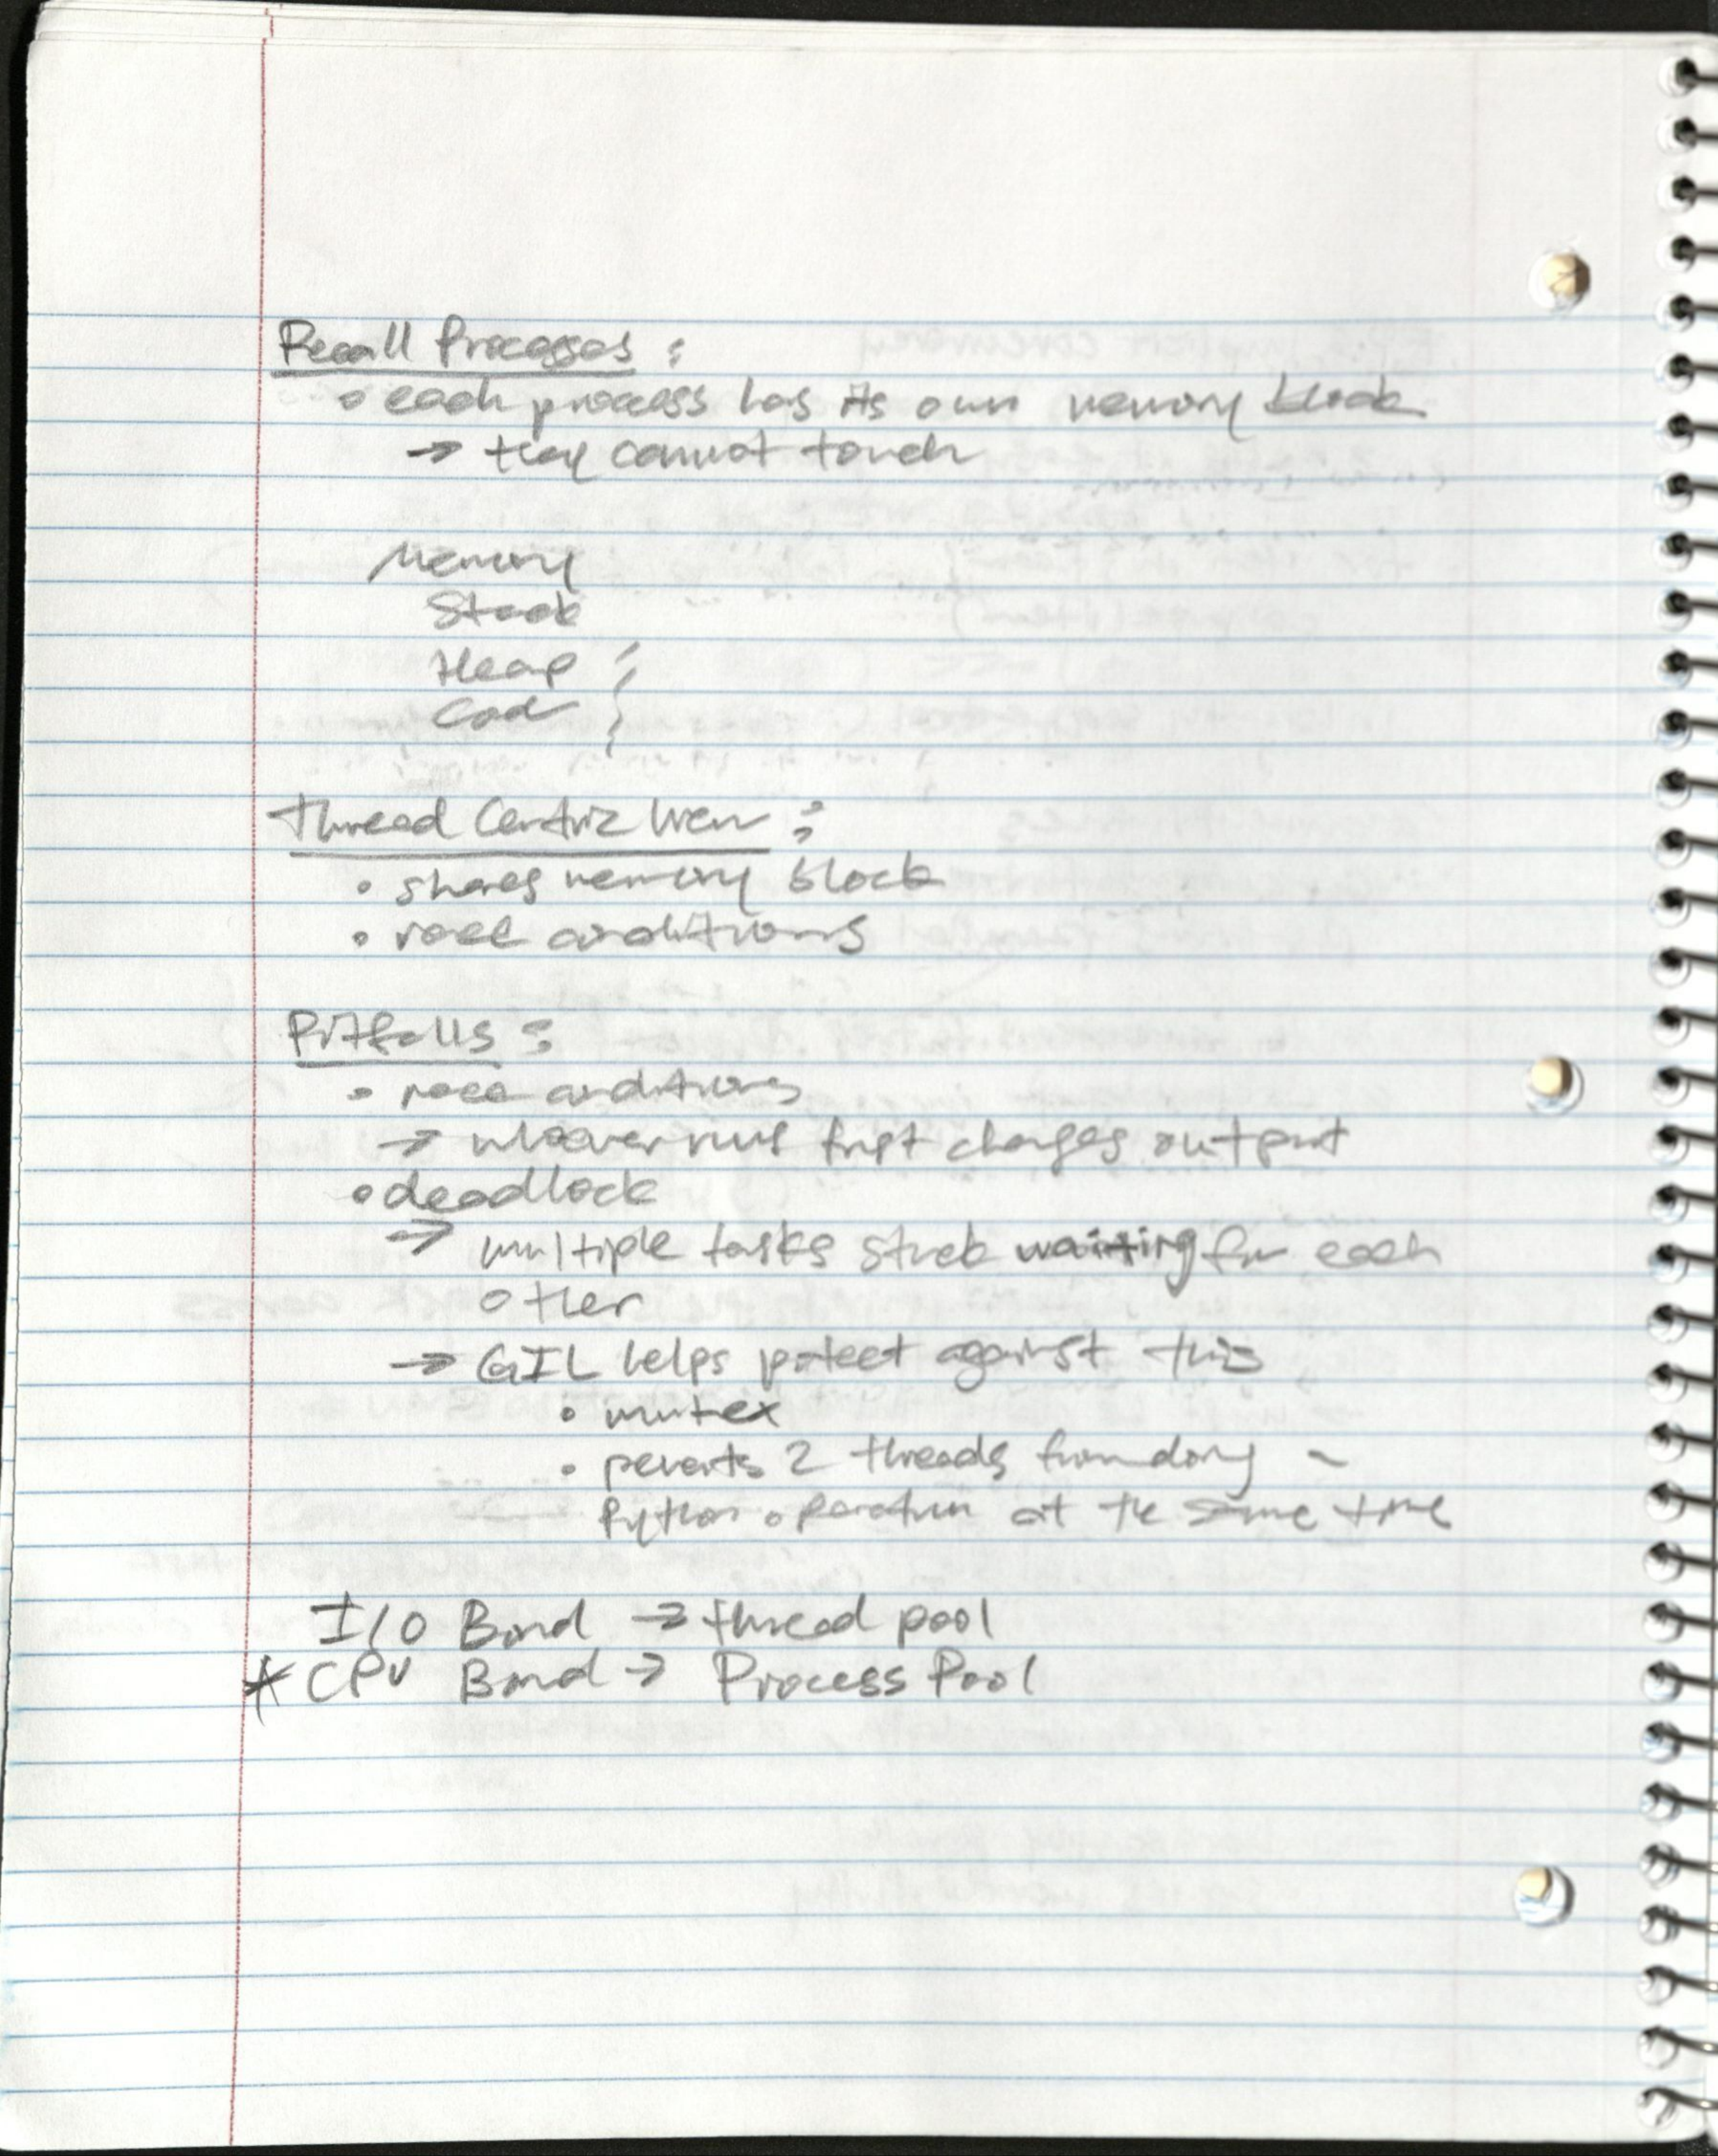 Recall Processes :
• each process has its own memory block
→ they cannot touch
Memory
Stack
Heap
Code
Thread Centric View :
• shares memory block
• race conditions
Pitfalls :
• race conditions
→ whoever runs first changes output
• deadlock
→ multiple tasks stuck waiting for each
other
→ GIL helps protect against this
• mutex
• prevents 2 threads from doing a
Python operation at the same time
I/O Bound → thread pool
* CPU Bound → Process Pool